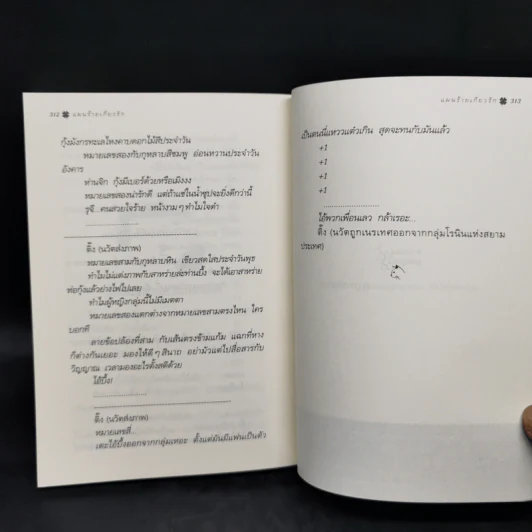 312 แผนร้ายเกี่ยวรัก
กุ้งมังกรทะเลไหงคาบดอกไม้สีประจำวัน
หมายเลขสองกับกุหลาบสีชมพู อ่อนหวานประจำวัน
อังคาร
ห่านจิก กุ้งมีเบอร์ด้วยหรือเมิงงง
หมายเลขสองน่ารักดี แต่ถ้าแช่ในน้ำซุปจะยิ่งดีกว่านี้
รุจี...คนสวยใจร้าย หน้างามๆ ทำไมใจดำ
........................
ติ๊ง (นวัตส่งภาพ)
หมายเลขสามกับกุหลาบหิน เขียวสดใสประจำวันพุธ
ทำไมไม่แต่งภาพกับสาหร่ายล่ะท่านยิ้ง จะได้เอาสาหร่าย
ห่อกุ้งแล้วย่างไฟไปเลย
ทำไมผู้หญิงกลุ่มนี้ไม่มีเมตตา
หมายเลขสองแตกต่างจากหมายเลขสามตรงไหน ใคร
บอกที
ลายข้อปล้องที่สาม กับเส้นตรงข้ามแก้ม แฉกที่หาง
ก็ต่างกันเยอะ มองให้ดีๆ สินาถ อย่ามัวแต่ไปสื่อสารกับ
วิญญาณ เวลามองอะไรตั้งสติด้วย
ไอ้บึ้ง!
........................
ติ๊ง (นวัตส่งภาพ)
หมายเลขสี่...
เตะไอ้บึ้งออกจากกลุ่มเหอะ ตั้งแต่มันมีแฟนเป็นตัว
แผนร้ายเกี่ยวรัก 313
เป็นตนนี่แหววแต๋วเกิน สุดจะทนกับมันแล้ว
+1
+1
+1
+1
........................
ไอ้พวกเพื่อนเลว กล้าเรอะ...
ติ๊ง (นวัตถูกเนรเทศออกจากกลุ่มโรนินแห่งสยาม
ประเทศ)